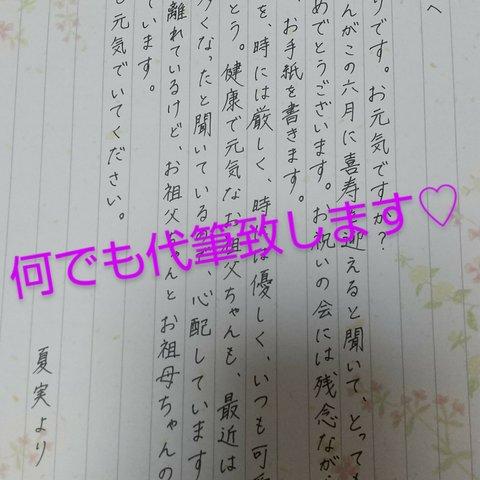 へ
りです。お元気ですか？
んがこの六月に喜寿を迎えると聞いて、とっても
めでとうございます。お祝いの会には残念なが
、お手紙を書きます。
を、時には厳しく、時には優しく、いつも可
とう。健康で元気なお祖父ちゃんも、最近は
くなったと聞いている 、心配しています
離れているけど、お祖父ちゃんとお祖母ちゃんの
ています。
も元気でいてください。
夏実より
何でも代筆致します♡